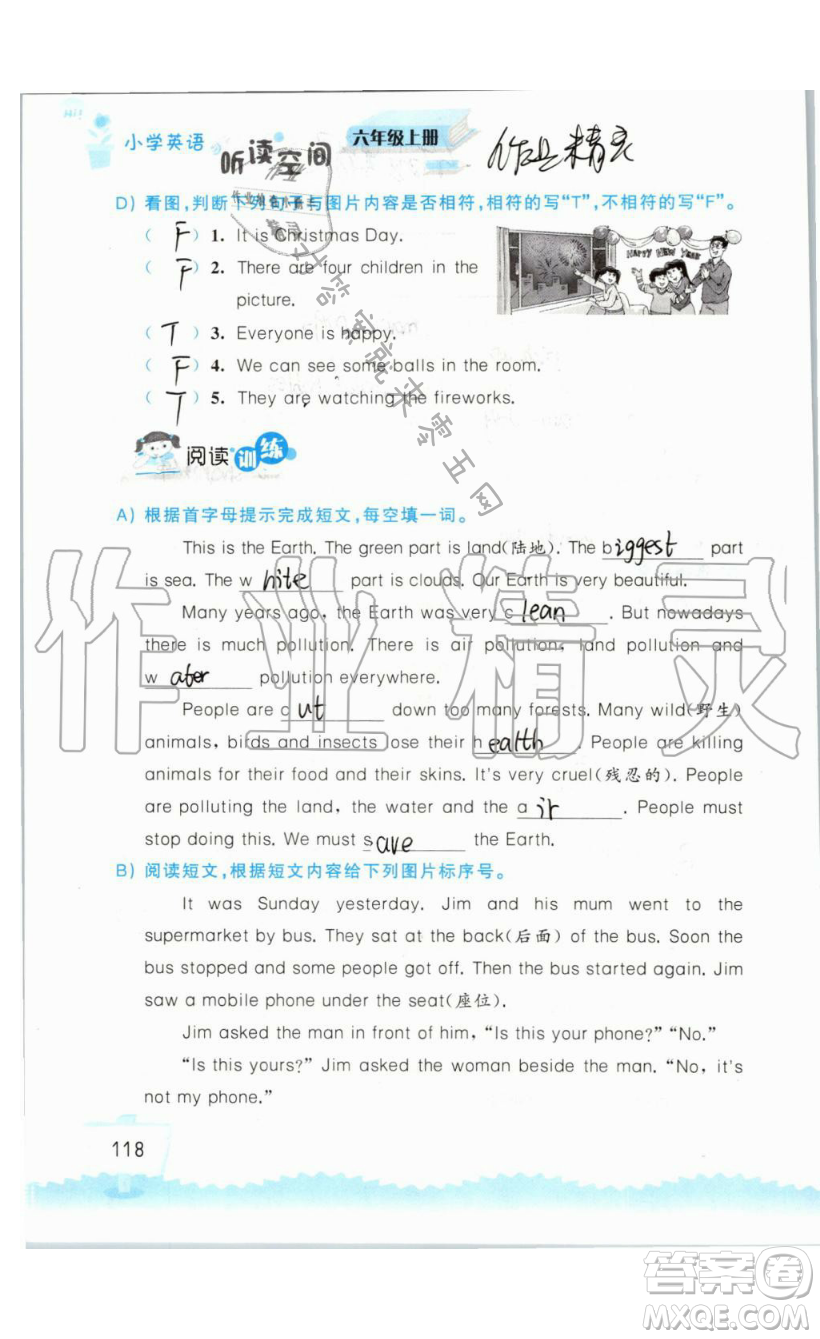 Hi!
小学英语 听读空间 六年级上册 作业精灵
D) 看图,判断下列句子与图片内容是否相符,相符的写“T”,不相符的写“F”。
( F ) 1. It is Christmas Day.
( F ) 2. There are four children in the
picture.
( T ) 3. Everyone is happy.
( F ) 4. We can see some balls in the room.
( T ) 5. They are watching the fireworks.
HAPPY NEW YEAR
找答案就来零五网
阅读训练
A) 根据首字母提示完成短文,每空填一词。
This is the Earth. The green part is land(陆地). The biggest part
is sea. The w hite part is clouds. Our Earth is very beautiful.
Many years ago, the Earth was very c lean . But nowadays
there is much pollution. There is air pollution, land pollution and
w ater pollution everywhere.
People are c ut down too many forests. Many wild(野生)
animals, birds and insects lose their h ealth . People are killing
animals for their food and their skins. It's very cruel(残忍的). People
are polluting the land, the water and the a ir . People must
stop doing this. We must save the Earth.
B) 阅读短文,根据短文内容给下列图片标序号。
It was Sunday yesterday. Jim and his mum went to the
supermarket by bus. They sat at the back(后面) of the bus. Soon the
bus stopped and some people got off. Then the bus started again. Jim
saw a mobile phone under the seat(座位).
Jim asked the man in front of him, “Is this your phone?” “No.”
“Is this yours?” Jim asked the woman beside the man. “No, it's
not my phone.”
118
作业精灵
答案圈
MXQE.COM